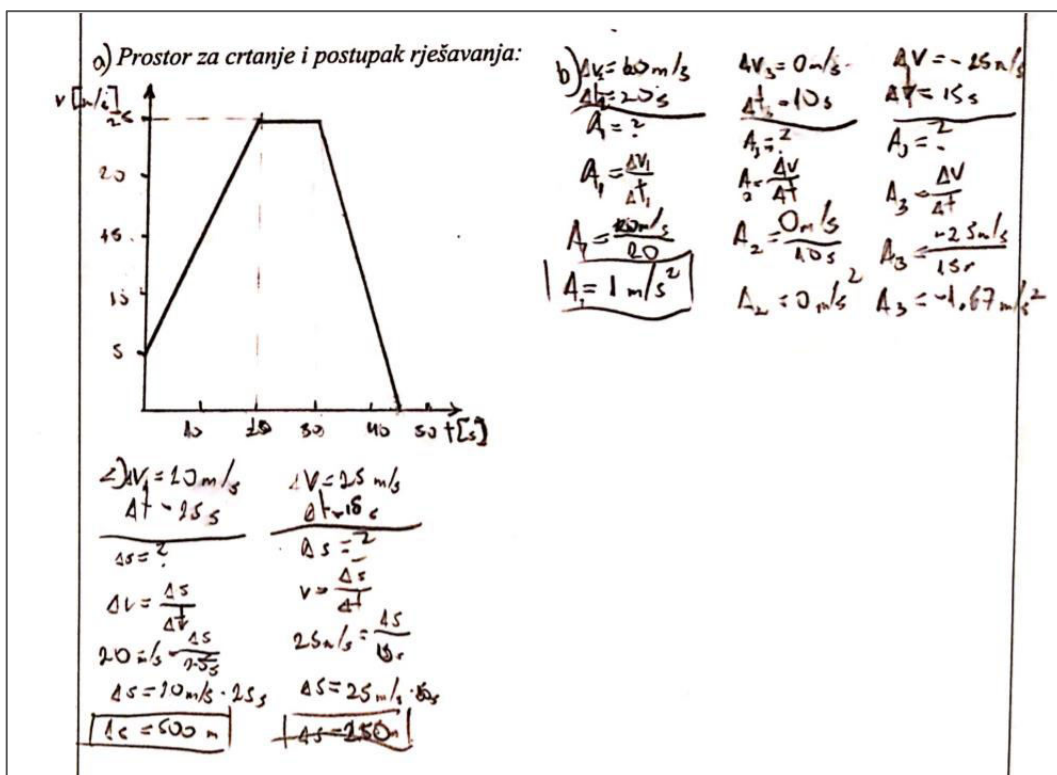 a) Prostor za crtanje i postupak rješavanja:
v [m/s]
25
20
15
5
10
30
40
50 t[s]
b) Δt₁=20s
A₁=?
A₁=ΔV₁/Δt₁
A₁= /20
A₁=1 m/s²
ΔV₃=0m/s
Δt₃=10s
A₃=?
A₂=ΔV/Δt
A₂=0m/s/10s
A₂=0m/s²
ΔV=-25m/s
=15s
A₃=?
A₃=ΔV/Δt
A₃=-25m/s/15s
A₃=-1.67m/s²
Δt=25s
Δs=?
ΔV=Δs/Δt
20m/s=Δs/25s
Δs=20m/s·25s
Δs=500m
ΔV=25m/s
Δs=?
v=Δs/Δt
25m/s=Δs/
Δs=25m/s·
Δs=250m